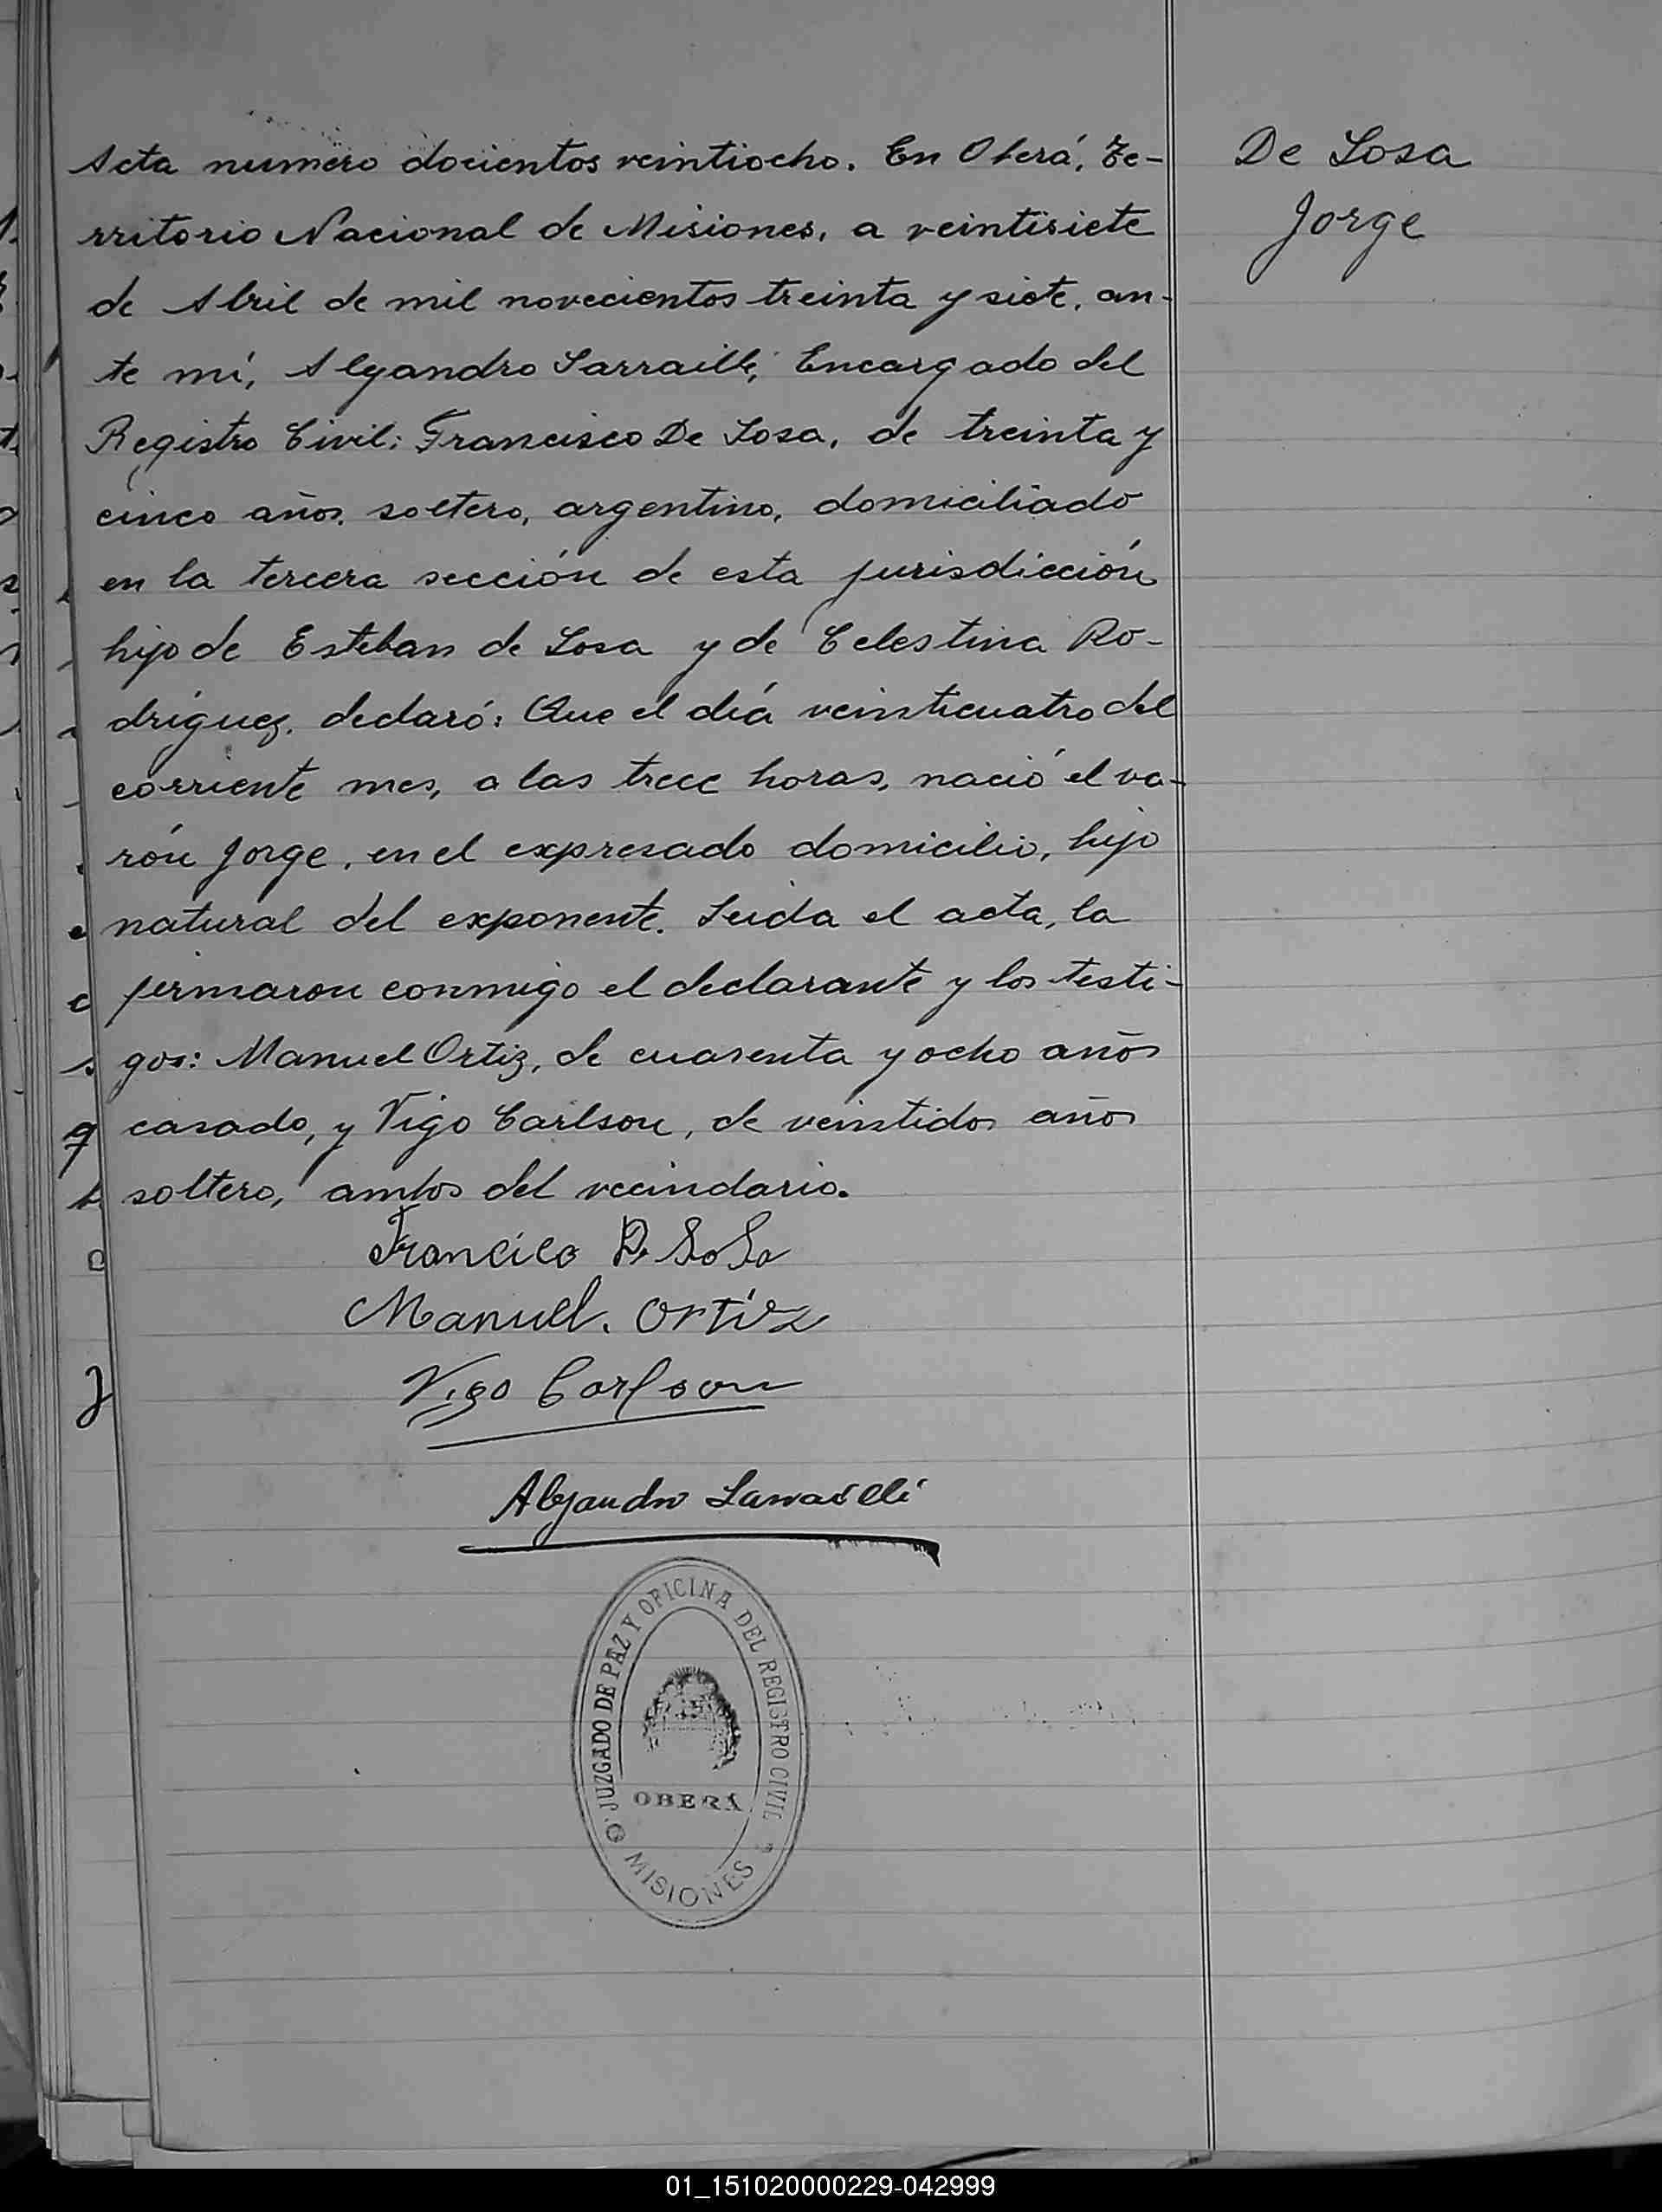 Acta numero docientos veintiocho. En Oberá, Te-
De Sosa
rritorio Nacional de Misiones, a veintisiete
Jorge
de Abril de mil novecientos treinta y siete, an-
te mí, Alejandro Sarrailli, Encargado del
Registro Civil: Francisco De Sosa, de treinta y
cinco años, soltero, argentino, domiciliado
en la tercera sección de esta jurisdicción
hijo de Esteban de Sosa y de Celestina Ro-
driguez, declaró: Que el día veinticuatro del
corriente mes, a las trece horas, nació el va-
rón Jorge, en el expresado domicilio, hijo
natural del exponente. Leida el acta, la
firmaron conmigo el declarante y los testi-
gos: Manuel Ortiz, de cuarenta y ocho años
casado, y Vigo Carlson, de veintidos años
soltero, ambos del vecindario.
Francisco De Sosa
Manuel. Ortiz
Vigo Carlson
Alejandro Sarrailli
JUZGADO DE PAZ Y OFICINA DEL REGISTRO CIVIL
OBERÁ
MISIONES
01_151020000229-042999